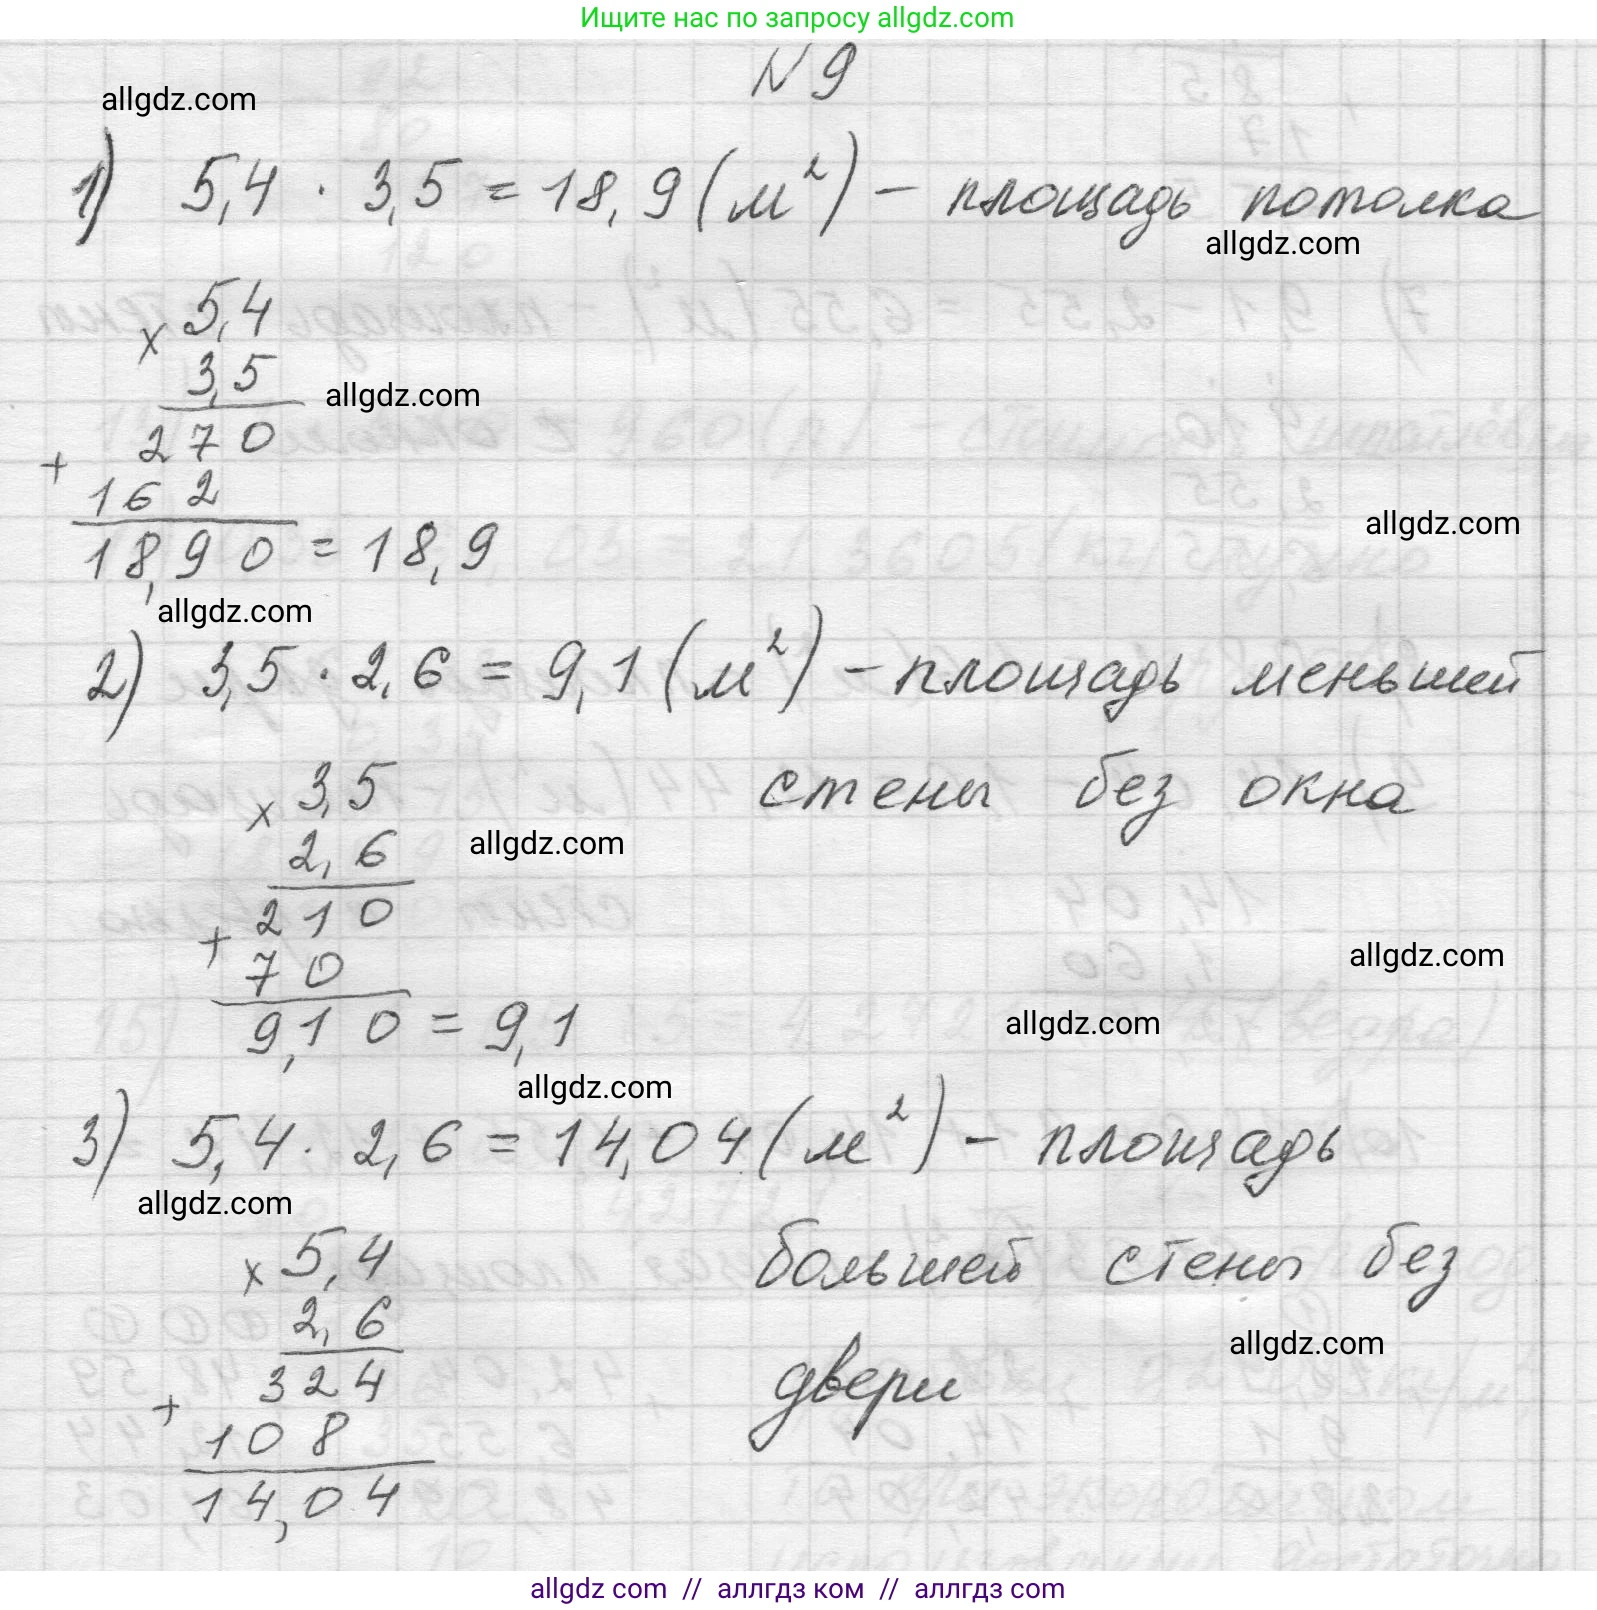 Ищите нас по запросу allgdz.com
N 9
allgdz.com
1) 5,4 · 3,5 = 18,9 (м²) – площадь потолка
allgdz.com
× 5,4
3,5
allgdz.com
270
+
162
18,90 = 18,9
allgdz.com
allgdz.com
2) 3,5 · 2,6 = 9,1 (м²) – площадь меньшей
стены без окна
× 3,5
2,6
allgdz.com
210
+
70
allgdz.com
9,10 = 9,1
allgdz.com
allgdz.com
3) 5,4 · 2,6 = 14,04 (м²) – площадь
allgdz.com
большей стены без
двери
× 5,4
2,6
allgdz.com
324
+
108
14,04
allgdz com // аллгдз ком // allgdz com